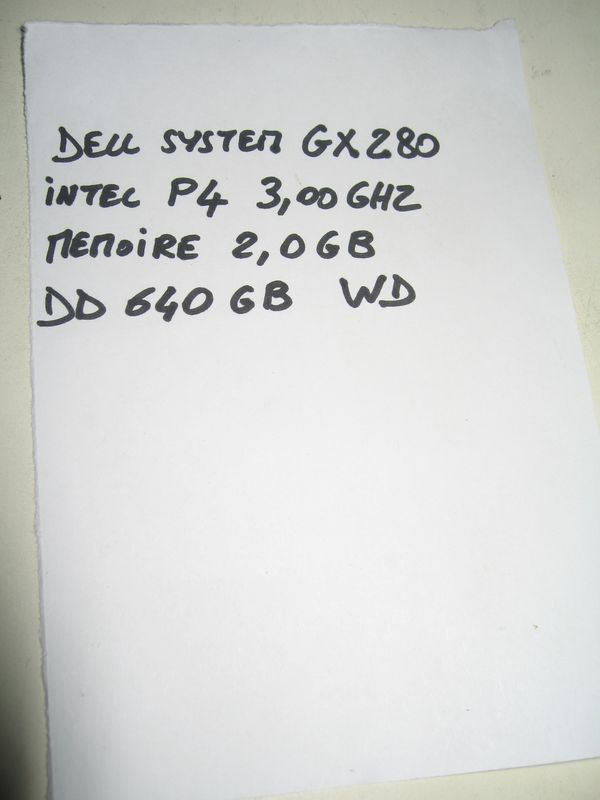 DELL SYSTEM GX280
iNTEL P4 3,00 GHZ
MEMOiRE 2,0 GB
DD 640 GB WD